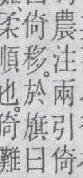 農注兩引倚
倚移。於旗曰
柔順也。倚難